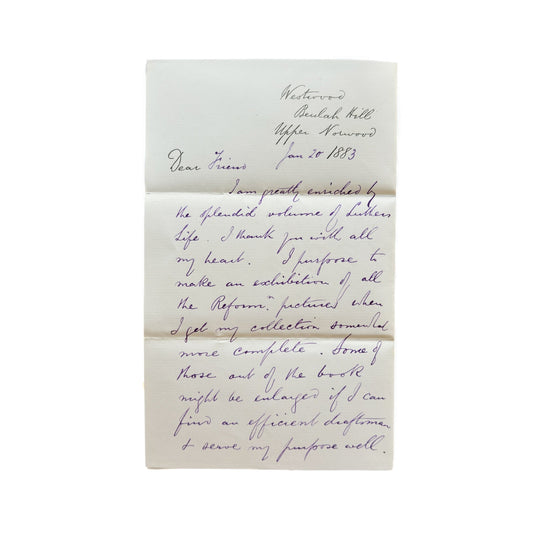 Westwood
Beulah Hill
Upper Norwood
Jan 20 1883
Dear Friend
I am greatly enriched by
the splendid volume of Luthers
Life. I thank you with all
my heart. I purpose to
make an exhibition of all
the Reformn. pictures when
I get my collection somewhat
more complete. Some of
those out of the book
might be enlarged if I can
find an efficient draftsman
& serve my purpose well.